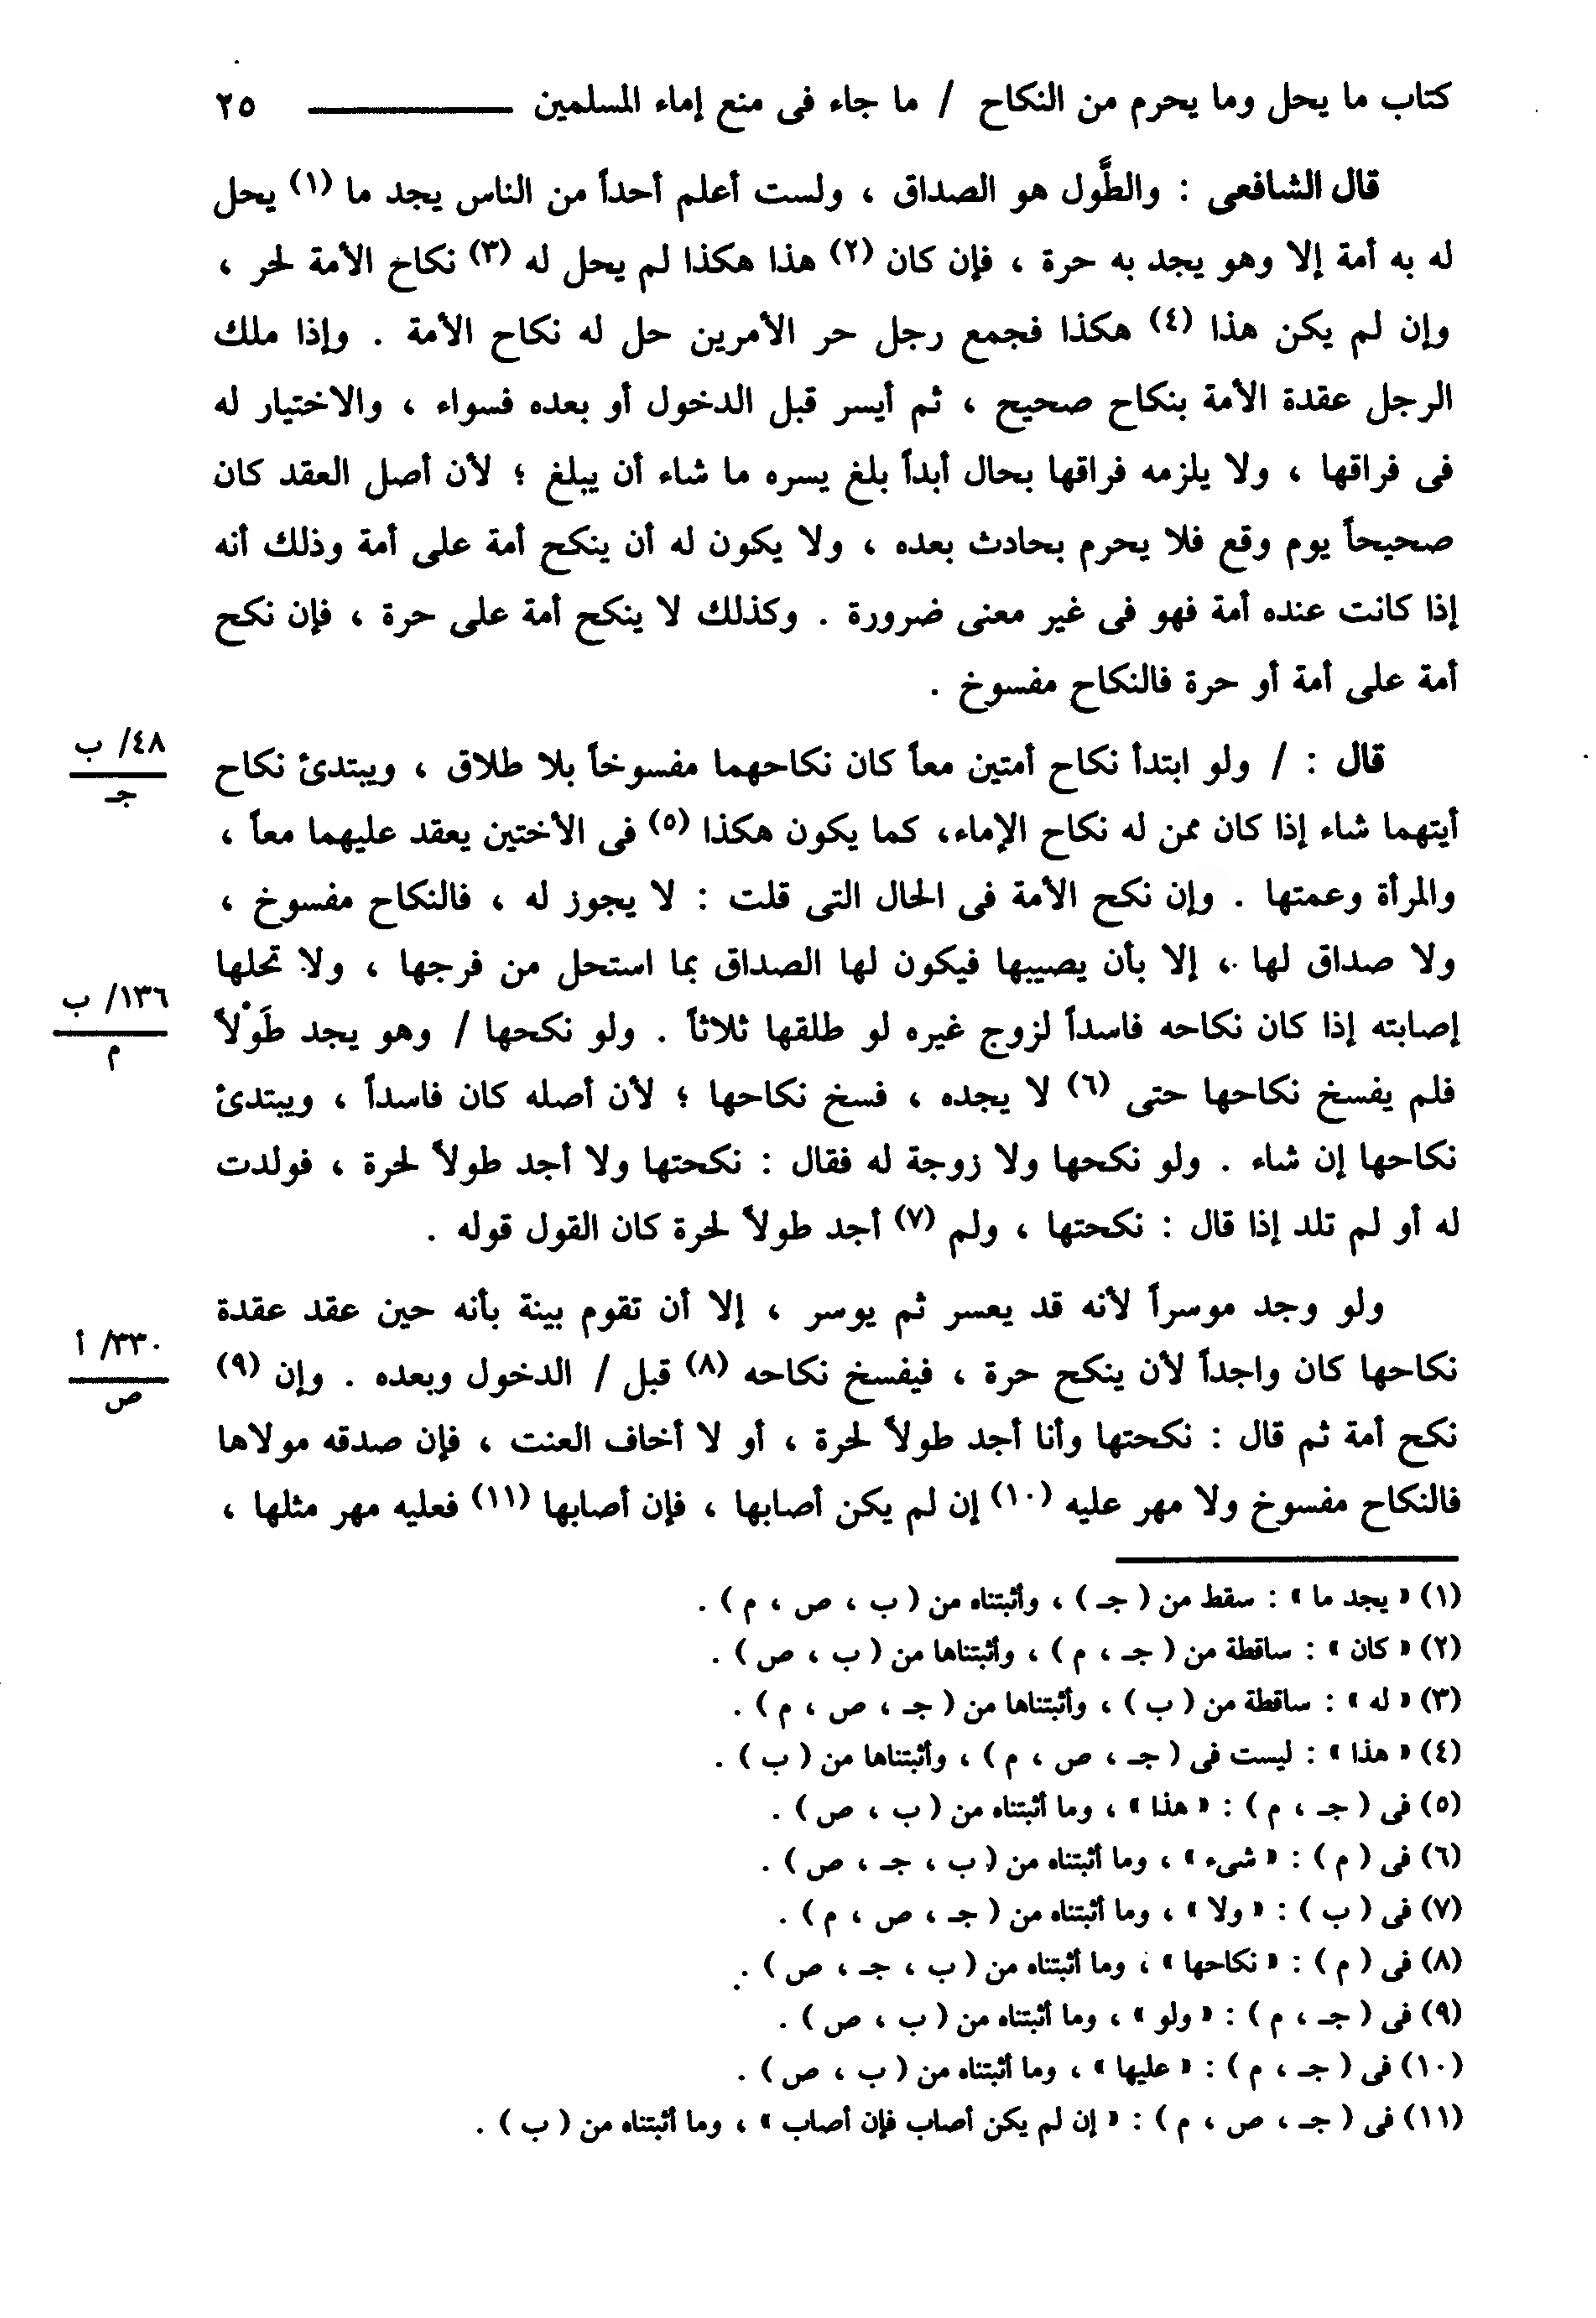 كتاب ما يحل وما يحرم من النكاح / ما جاء فى منع إماء المسلمين ــــــــــــ ٢٥
قال الشافعى : والطَّول هو الصداق ، ولست أعلم أحداً من الناس يجد ما (١) يحل
له به أمة إلا وهو يجد به حرة ، فإن كان (٢) هذا هكذا لم يحل له (٣) نكاح الأمة لحر ،
وإن لم يكن هذا (٤) هكذا فجمع رجل حر الأمرين حل له نكاح الأمة . وإذا ملك
الرجل عقدة الأمة بنكاح صحيح ، ثم أيسر قبل الدخول أو بعده فسواء ، والاختيار له
فى فراقها ، ولا يلزمه فراقها بحال أبداً بلغ يسره ما شاء أن يبلغ ؛ لأن أصل العقد كان
صحيحاً يوم وقع فلا يحرم بحادث بعده ، ولا يكون له أن ينكح أمة على أمة وذلك أنه
إذا كانت عنده أمة فهو فى غير معنى ضرورة . وكذلك لا ينكح أمة على حرة ، فإن نكح
أمة على أمة أو حرة فالنكاح مفسوخ .
٤٨/ ب
جـ
قال : / ولو ابتدأ نكاح أمتين معاً كان نكاحهما مفسوخاً بلا طلاق ، ويبتدئ نكاح
أيتهما شاء إذا كان ممن له نكاح الإماء، كما يكون هكذا (٥) فى الأختين يعقد عليهما معاً ،
والمرأة وعمتها . وإن نكح الأمة فى الحال التى قلت : لا يجوز له ، فالنكاح مفسوخ ،
ولا صداق لها ، إلا بأن يصيبها فيكون لها الصداق بما استحل من فرجها ، ولا تحلها
١٣٦/ ب
م
إصابته إذا كان نكاحه فاسداً لزوج غيره لو طلقها ثلاثاً . ولو نكحها / وهو يجد طَوْلاً
فلم يفسخ نكاحها حتى (٦) لا يجده ، فسخ نكاحها ؛ لأن أصله كان فاسداً ، ويبتدئ
نكاحها إن شاء . ولو نكحها ولا زوجة له فقال : نكحتها ولا أجد طولاً لحرة ، فولدت
له أو لم تلد إذا قال : نكحتها ، ولم (٧) أجد طولاً لحرة كان القول قوله .
ولو وجد موسراً لأنه قد يعسر ثم يوسر ، إلا أن تقوم بينة بأنه حين عقد عقدة
٣٣٠/ أ
ص
نكاحها كان واجداً لأن ينكح حرة ، فيفسخ نكاحه (٨) قبل / الدخول وبعده . وإن (٩)
نكح أمة ثم قال : نكحتها وأنا أجد طولاً لحرة ، أو لا أخاف العنت ، فإن صدقه مولاها
فالنكاح مفسوخ ولا مهر عليه (١٠) إن لم يكن أصابها ، فإن أصابها (١١) فعليه مهر مثلها ،
(١) « يجد ما » : سقط من ( جـ ) ، وأثبتناه من ( ب ، ص ، م ) .
(٢) « كان » : ساقطة من ( جـ ، م ) ، وأثبتناها من ( ب ، ص ) .
(٣) « له » : ساقطة من ( ب ) ، وأثبتناها من ( جـ ، ص ، م ) .
(٤) « هذا » : ليست فى ( جـ ، ص ، م ) ، وأثبتناها من ( ب ) .
(٥) فى ( جـ ، م ) : « هذا » ، وما أثبتناه من ( ب ، ص ) .
(٦) فى ( م ) : « شىء » ، وما أثبتناه من ( ب ، جـ ، ص ) .
(٧) فى ( ب ) : « ولا » ، وما أثبتناه من ( جـ ، ص ، م ) .
(٨) فى ( م ) : « نكاحها » ، وما أثبتناه من ( ب ، جـ ، ص ) .
(٩) فى ( جـ ، م ) : « ولو » ، وما أثبتناه من ( ب ، ص ) .
(١٠) فى ( جـ ، م ) : « عليها » ، وما أثبتناه من ( ب ، ص ) .
(١١) فى ( جـ ، ص ، م ) : « إن لم يكن أصاب فإن أصاب » ، وما أثبتناه من ( ب ) .